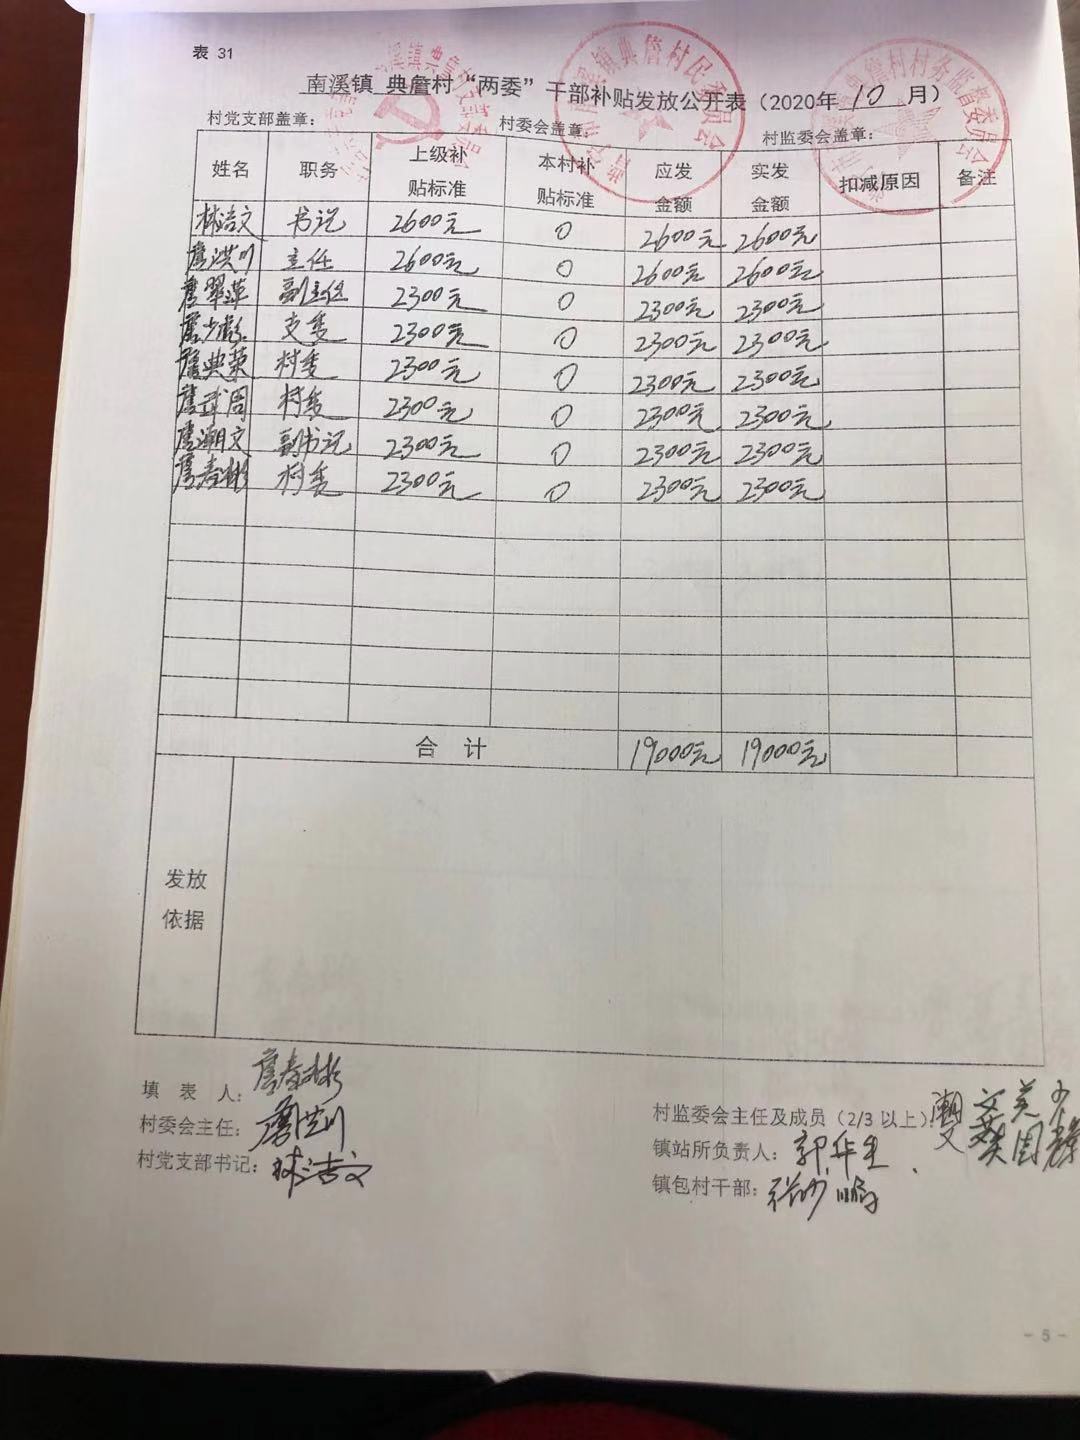 表 31
南溪镇 典詹村 “两委” 干部补贴发放公开表（2020年 10 月）
村党支部盖章： 村委会盖章： 村监委会盖章：
姓名 职务 上级补贴标准 本村补贴标准 应发金额 实发金额 扣减原因 备注
林洁文 书记 2600元 0 2600元 2600元
詹洪川 主任 2600元 0 2600元 2600元
詹翠萍 副主任 2300元 0 2300元 2300元
詹少彬 支委 2300元 0 2300元 2300元
詹典荣 村委 2300元 0 2300元 2300元
詹武周 村委 2300元 0 2300元 2300元
詹潮文 副书记 2300元 0 2300元 2300元
詹春彬 村委 2300元 0 2300元 2300元
合 计 19000元 19000元
发放
依据
填 表 人： 詹春彬
村委会主任： 詹洪川
村党支部书记： 林洁文
村监委会主任及成员（2/3 以上）
镇站所负责人： 郭华
镇包村干部： 鹏
- 5 -